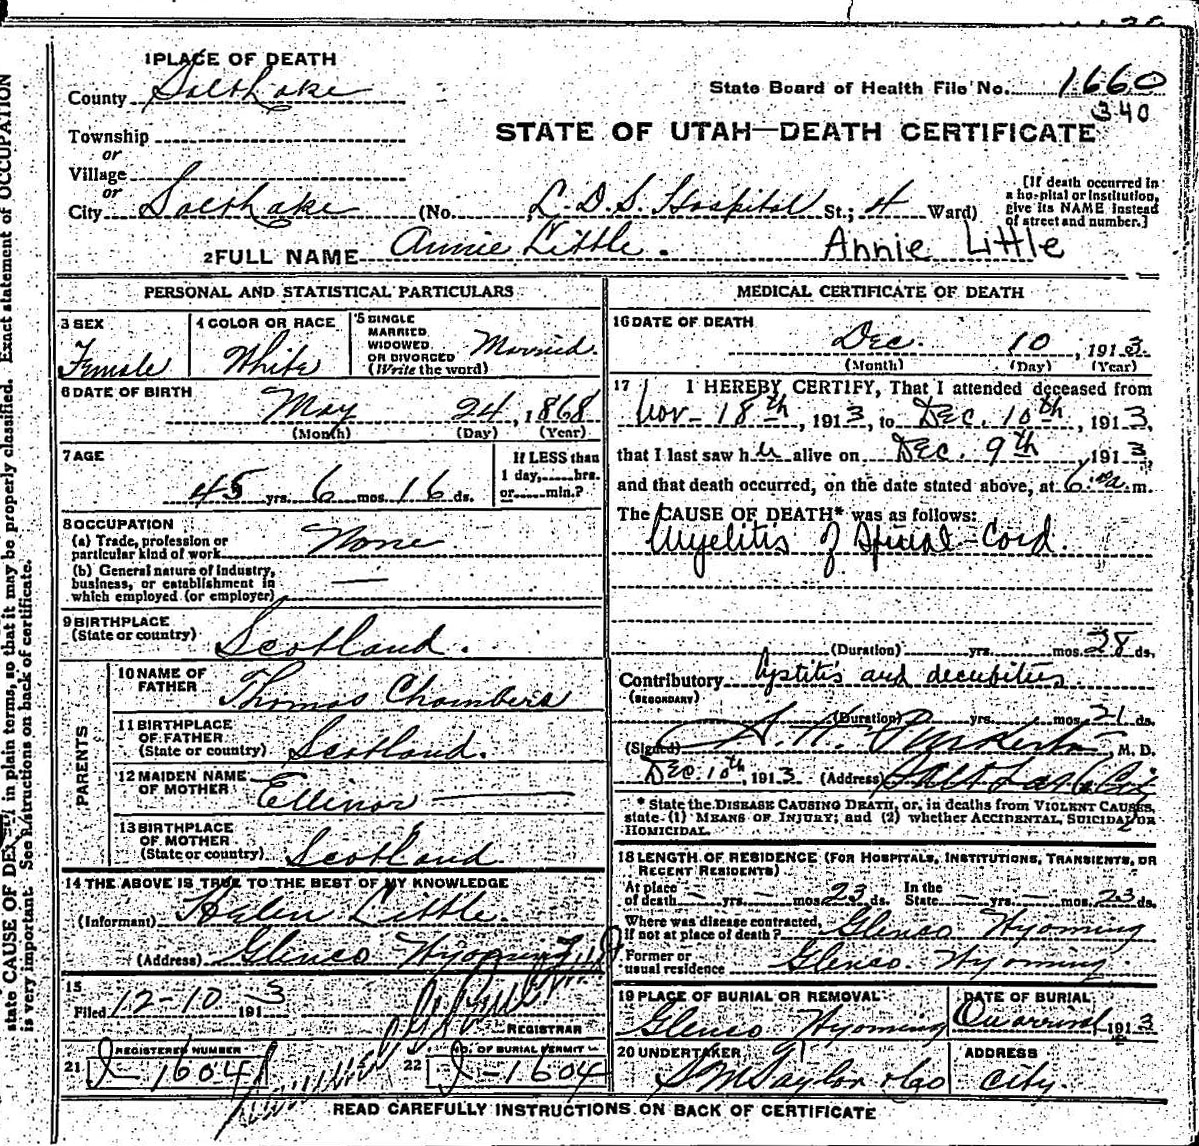 1 PLACE OF DEATH
County Salt Lake
State Board of Health File No. 1660
340
STATE OF UTAH—DEATH CERTIFICATE
Township
or
Village
or
City Salt Lake (No. L.D.S. Hospital St.; 4 Ward)
[If death occurred in
a hospital or institution,
give its NAME instead
of street and number.]
2 FULL NAME Annie Little. Annie Little
PERSONAL AND STATISTICAL PARTICULARS
3 SEX
Female
4 COLOR OR RACE
White
5 SINGLE
MARRIED
WIDOWED
OR DIVORCED
(Write the word)
Married.
6 DATE OF BIRTH
May 24, 1868
(Month) (Day) (Year)
7 AGE
45 yrs. 6 mos. 16 ds.
If LESS than
1 day, hrs.
or min.?
8 OCCUPATION
(a) Trade, profession or
particular kind of work
None
(b) General nature of industry,
business, or establishment in
which employed (or employer)
—
9 BIRTHPLACE
(State or country)
Scotland.
PARENTS
10 NAME OF
FATHER
Thomas Chambers
11 BIRTHPLACE
OF FATHER
(State or country)
Scotland.
12 MAIDEN NAME
OF MOTHER
Ellinor —
13 BIRTHPLACE
OF MOTHER
(State or country)
Scotland
14 THE ABOVE IS TRUE TO THE BEST OF MY KNOWLEDGE
(Informant) Helen Little.
(Address) Glenco Wyoming
15
Filed 12-10 1913
REGISTRAR
21
REGISTERED NUMBER
1604
22
NO. OF BURIAL PERMIT
1604
MEDICAL CERTIFICATE OF DEATH
16 DATE OF DEATH
Dec. 10, 1913.
(Month) (Day) (Year)
17 I HEREBY CERTIFY, That I attended deceased from
Nov- 18th, 1913, to Dec. 10th, 1913,
that I last saw her alive on Dec. 9th, 1913,
and that death occurred, on the date stated above, at 6 a.m.
The CAUSE OF DEATH* was as follows:
Myelitis of Spinal-Cord.
(Duration) yrs. mos. 28 ds.
Contributory Cystitis and decubities
(SECONDARY)
(Duration) yrs. mos. 21 ds.
(Signed) M. D.
Dec. 10th, 1913 (Address) Salt Lake City
* State the DISEASE CAUSING DEATH, or, in deaths from VIOLENT CAUSES,
state (1) MEANS OF INJURY; and (2) whether ACCIDENTAL, SUICIDAL OR
HOMICIDAL.
18 LENGTH OF RESIDENCE (FOR HOSPITALS, INSTITUTIONS, TRANSIENTS, OR
RECENT RESIDENTS)
At place
of death — yrs. — mos. 23 ds.
In the
State — yrs. — mos. 23 ds.
Where was disease contracted,
if not at place of death? Glenco Wyoming
Former or
usual residence Glenco. Wyoming.
19 PLACE OF BURIAL OR REMOVAL
Glenco Wyoming
DATE OF BURIAL
On arrival 1913
20 UNDERTAKER
S M Taylor & Co
ADDRESS
City.
READ CAREFULLY INSTRUCTIONS ON BACK OF CERTIFICATE
state CAUSE OF DEATH in plain terms, so that it may be properly classified. Exact statement of OCCUPATION
is very important. See instructions on back of certificate.